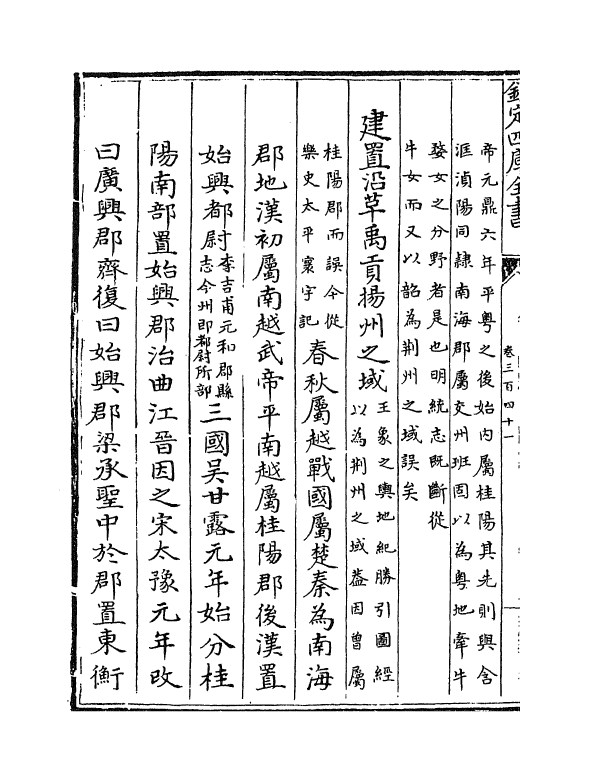 欽定四庫全書
卷三百四十一
帝元鼎六年平粤之後始内屬桂陽其先則與含
洭湞陽同隷南海郡屬交州班固以為粤地牽牛
婺女之分野者是也明統志既斷從
牛女而又以韶為荆州之域誤矣
建置沿革禹貢揚州之域王象之輿地紀勝引圖經
以為荆州之域葢因曾屬
桂陽郡而誤今從
樂史太平寰宇記春秋屬越戰國屬楚秦為南海
郡地漢初屬南越武帝平南越屬桂陽郡後漢置
始興都尉李吉甫元和郡縣
志今州即都尉所部三國吴甘露元年始分桂
陽南部置始興郡治曲江晉因之宋太豫元年改
曰廣興郡齊復曰始興郡梁承聖中於郡置東衡